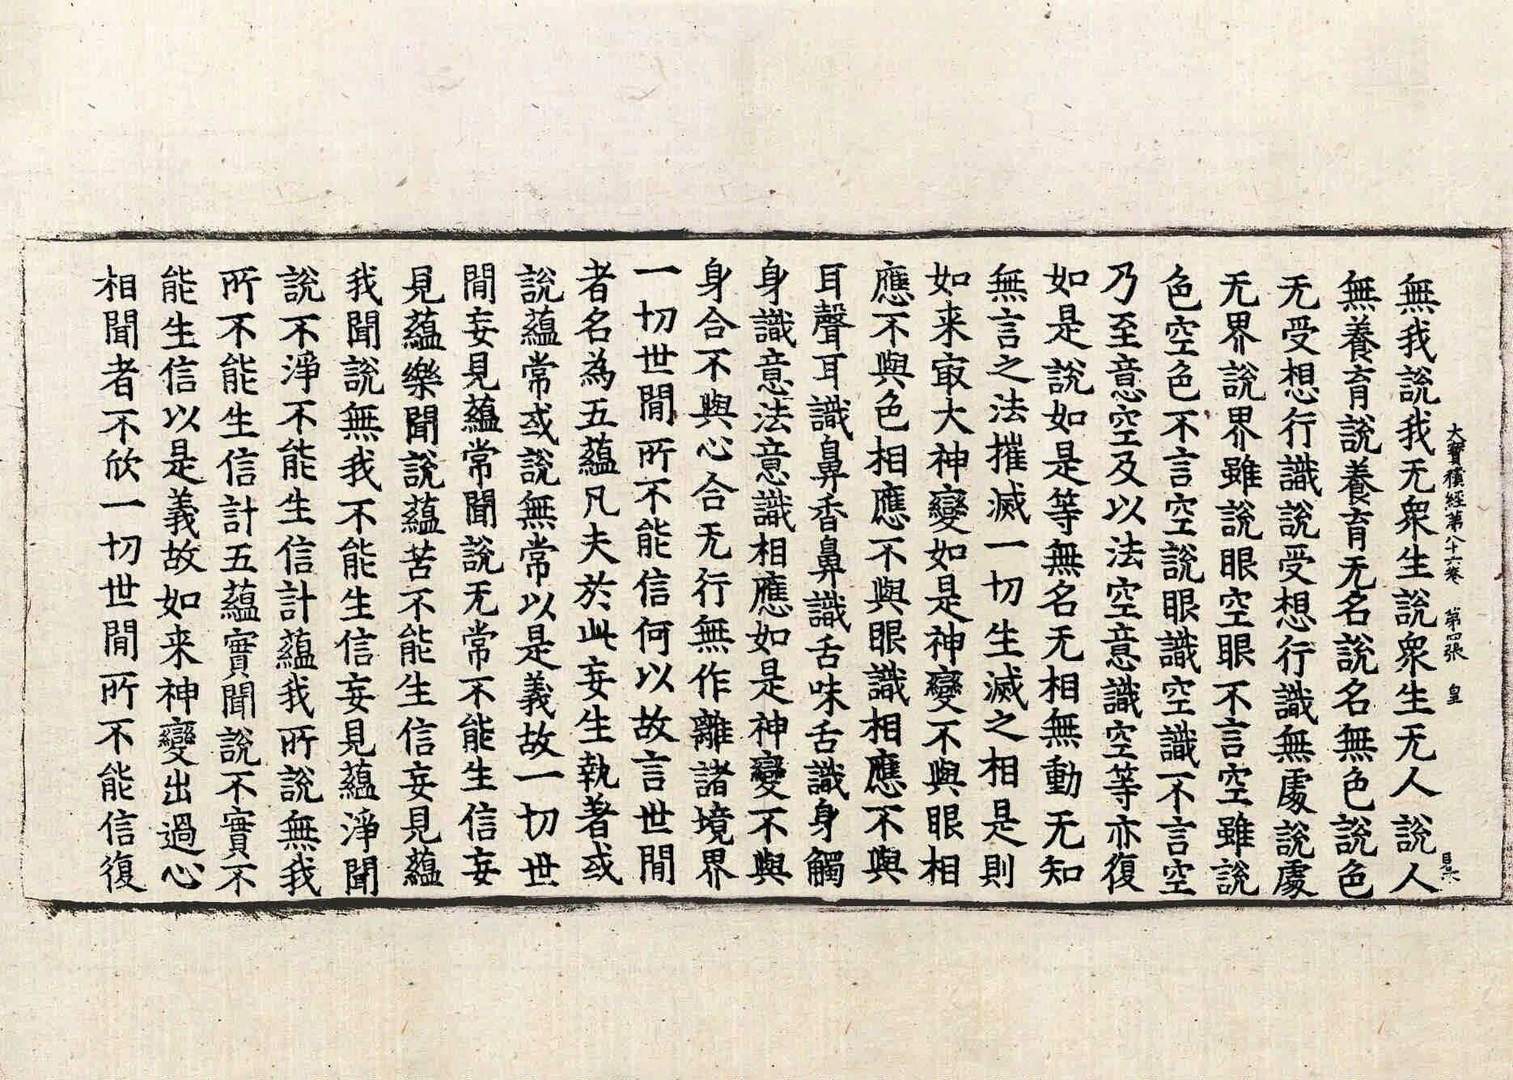 大寶積經第八十六卷　第四張　皇
無我說我无衆生說衆生无人說人
無養育說養育无名說名無色說色
无受想行識說受想行識無處說處
无界說界雖說眼空眼不言空雖說
色空色不言空說眼識空識不言空
乃至意空及以法空意識空等亦復
如是說如是等無名无相無動无知
無言之法摧滅一切生滅之相是則
如来㝡大神變如是神變不與眼相
應不與色相應不與眼識相應不與
耳聲耳識鼻香鼻識舌味舌識身觸
身識意法意識相應如是神變不與
身合不與心合无行無作離諸境界
一切世間所不能信何以故言世間
者名為五蘊凡夫於此妄生執著或
說蘊常或說無常以是義故一切世
間妄見蘊常聞說无常不能生信妄
見蘊樂聞說蘊苦不能生信妄見蘊
我聞說無我不能生信妄見蘊淨聞
說不淨不能生信計蘊我所說無我
所不能生信計五蘊實聞說不實不
能生信以是義故如来神變出過心
相聞者不欣一切世間所不能信復